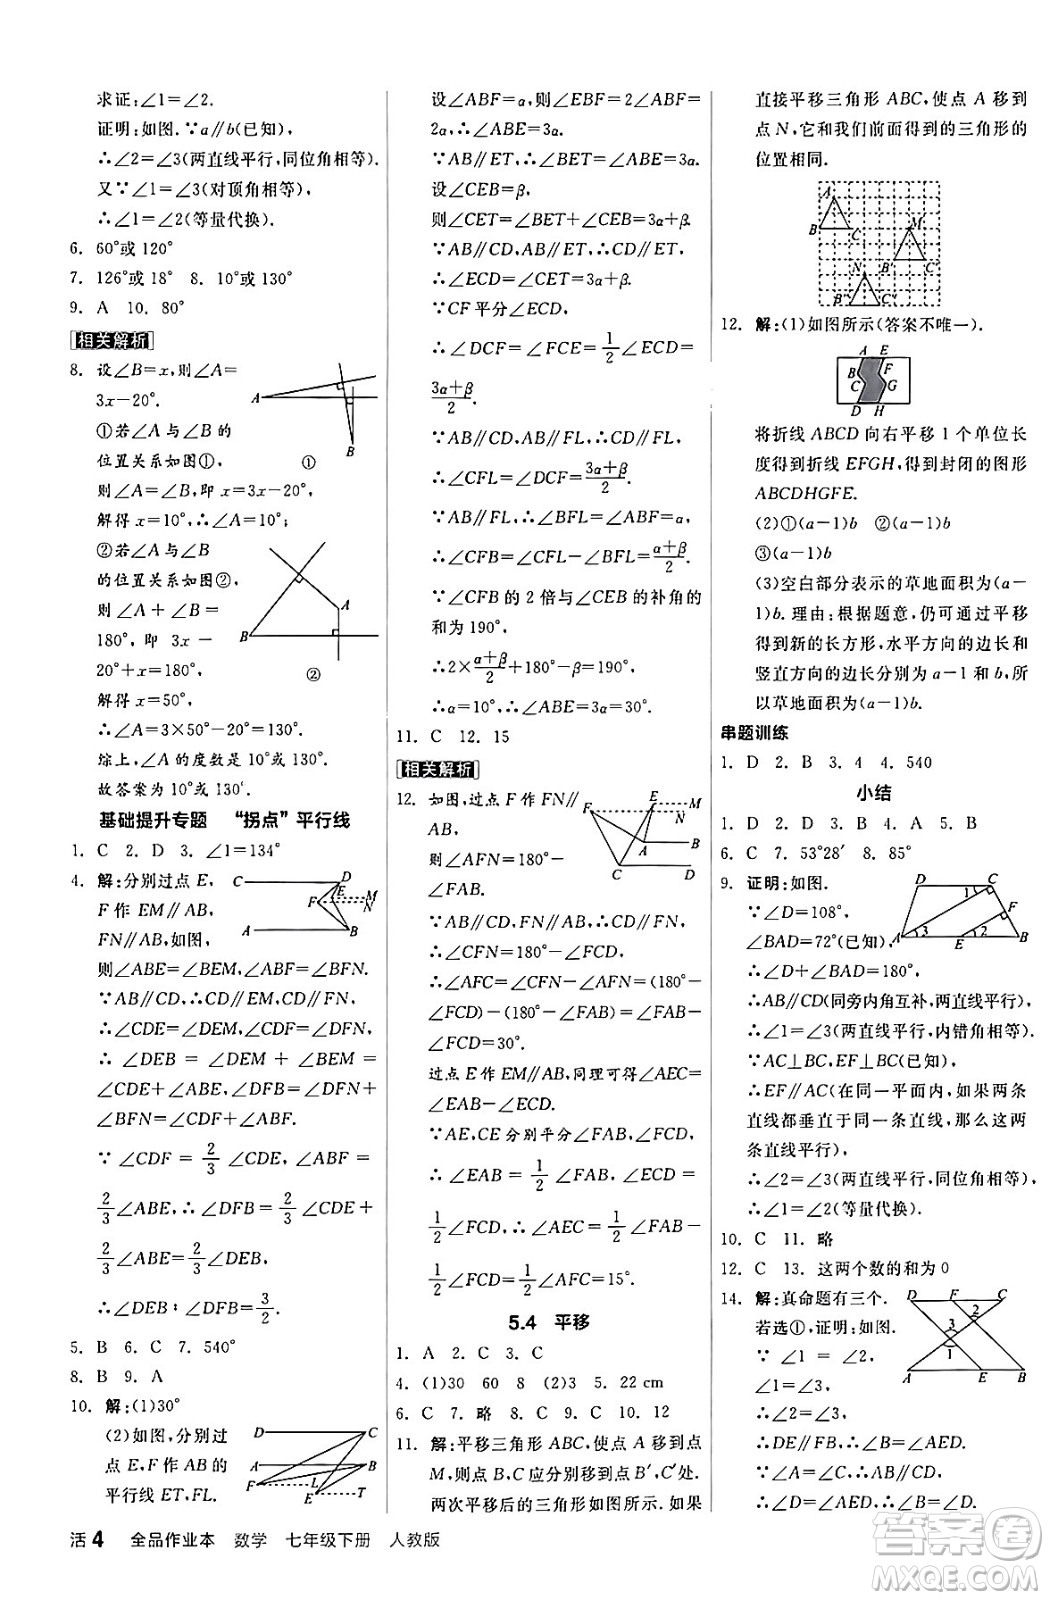 求证:∠1=∠2.
证明:如图.∵a∥b(已知),
∴∠2=∠3(两直线平行,同位角相等).
又∵∠1=∠3(对顶角相等),
∴∠1=∠2(等量代换).
6. 60°或120°
7. 126°或18° 8. 10°或130°
9. A 10. 80°
相关解析
8. 设∠B=x,则∠A=
3x-20°.
①若∠A与∠B的
位置关系如图①,
则∠A=∠B,即x=3x-20°,
解得x=10°,∴∠A=10°;
②若∠A与∠B
的位置关系如图②,
则∠A+∠B=
180°,即 3x-
20°+x=180°,
解得x=50°,
∴∠A=3×50°-20°=130°.
综上,∠A的度数是10°或130°.
故答案为10°或130°.
A
B
①
A
B
②
基础提升专题 “拐点”平行线
1. C 2. D 3. ∠1=134°
4. 解:分别过点E,
F作EM∥AB,
FN∥AB,如图,
C D E F M N A B
则∠ABE=∠BEM,∠ABF=∠BFN.
∵AB∥CD,∴CD∥EM,CD∥FN,
∴∠CDE=∠DEM,∠CDF=∠DFN,
∴∠DEB=∠DEM+∠BEM=
∠CDE+∠ABE,∠DFB=∠DFN+
∠BFN=∠CDF+∠ABF.
∵∠CDF=2/3∠CDE,∠ABF=
2/3∠ABE,∴∠DFB=2/3∠CDE+
2/3∠ABE=2/3∠DEB,
∴∠DEB∶∠DFB=3/2.
5. B 6. C 7. 540°
8. B 9. A
10. 解:(1)30°
(2)如图,分别过
点E,F作AB的
平行线ET,FL.
D C A B F L E T
设∠ABF=α,则∠EBF=2∠ABF=
2α,∴∠ABE=3α.
∵AB∥ET,∴∠BET=∠ABE=3α.
设∠CEB=β,
则∠CET=∠BET+∠CEB=3α+β.
∵AB∥CD,AB∥ET,∴CD∥ET,
∴∠ECD=∠CET=3α+β.
∵CF平分∠ECD,
∴∠DCF=∠FCE=1/2∠ECD=
(3α+β)/2.
∵AB∥CD,AB∥FL,∴CD∥FL,
∴∠CFL=∠DCF=(3α+β)/2.
∵AB∥FL,∴∠BFL=∠ABF=α,
∴∠CFB=∠CFL-∠BFL=(α+β)/2.
∵∠CFB的2倍与∠CEB的补角的
和为190°,
∴2×(α+β)/2+180°-β=190°,
∴α=10°,∴∠ABE=3α=30°.
11. C 12. 15
相关解析
12. 如图,过点F作FN∥
AB,
则∠AFN=180°-
∠FAB.
E M F N A B C D
∵AB∥CD,FN∥AB,∴FN∥CD,
∴∠CFN=180°-∠FCD,
∴∠AFC=∠CFN-∠AFN=(180°-
∠FCD)-(180°-∠FAB)=∠FAB-
∠FCD=30°.
过点E作EM∥AB,同理可得∠AEC=
∠EAB-∠ECD.
∵AE,CE分别平分∠FAB,∠FCD,
∴∠EAB=1/2∠FAB,∠ECD=
1/2∠FCD,∴∠AEC=1/2∠FAB-
1/2∠FCD=1/2∠AFC=15°.
5.4 平移
1. A 2. C 3. C
4. (1)30 60 8 (2)3 5. 22 cm
6. C 7. 略 8. C 9. C 10. 12
11. 解:平移三角形ABC,使点A移到点
M,则点B,C应分别移到B′,C′处.
两次平移后的三角形如图. 如果
直接平移三角形ABC,使点A移到
点N,它和我们前面得到的三角形的
位置相同.
A B C M N B′ C′ B″ C″
12. 解:(1)如图所示(答案不唯一).
A E B F C G D H
将折线ABCD向右平移1个单位长
度得到折线EFGH,得到封闭的图形
ABCDHGFE.
(2)①(a-1)b ②(a-1)b
③(a-1)b
(3)空白部分表示的草地面积为(a-
1)b.理由:根据题意,仍可通过平移
得到新的长方形,水平方向的边长和
竖直方向的边长分别为a-1和b,所
以草地面积为(a-1)b.
串题训练
1. D 2. B 3. 4 4. 540
小结
1. D 2. D 3. B 4. A 5. B
6. C 7. 53°28′ 8. 85°
9. 证明:如图.
∵∠D=108°,
∠BAD=72°(已知),
D C 1 F 3 2 A E B
∴∠D+∠BAD=180°,
∴AB∥CD(同旁内角互补,两直线平行),
∴∠1=∠3(两直线平行,内错角相等).
∵AC⊥BC,EF⊥BC(已知),
∴EF∥AC(在同一平面内,如果两条
直线都垂直于同一条直线,那么这两
条直线平行),
∴∠2=∠3(两直线平行,同位角相等),
∴∠1=∠2(等量代换).
10. C 11. 略
12. C 13. 这两个数的和为0
14. 解:真命题有三个.
若选①,证明:如图.
∵∠1=∠2,
∠1=∠3,
∴∠2=∠3,
∴DE∥FB,
D F C 2 3 1 A E B
活4 全品作业本 数学 七年级下册 人教版
答案圈
MXQE.COM